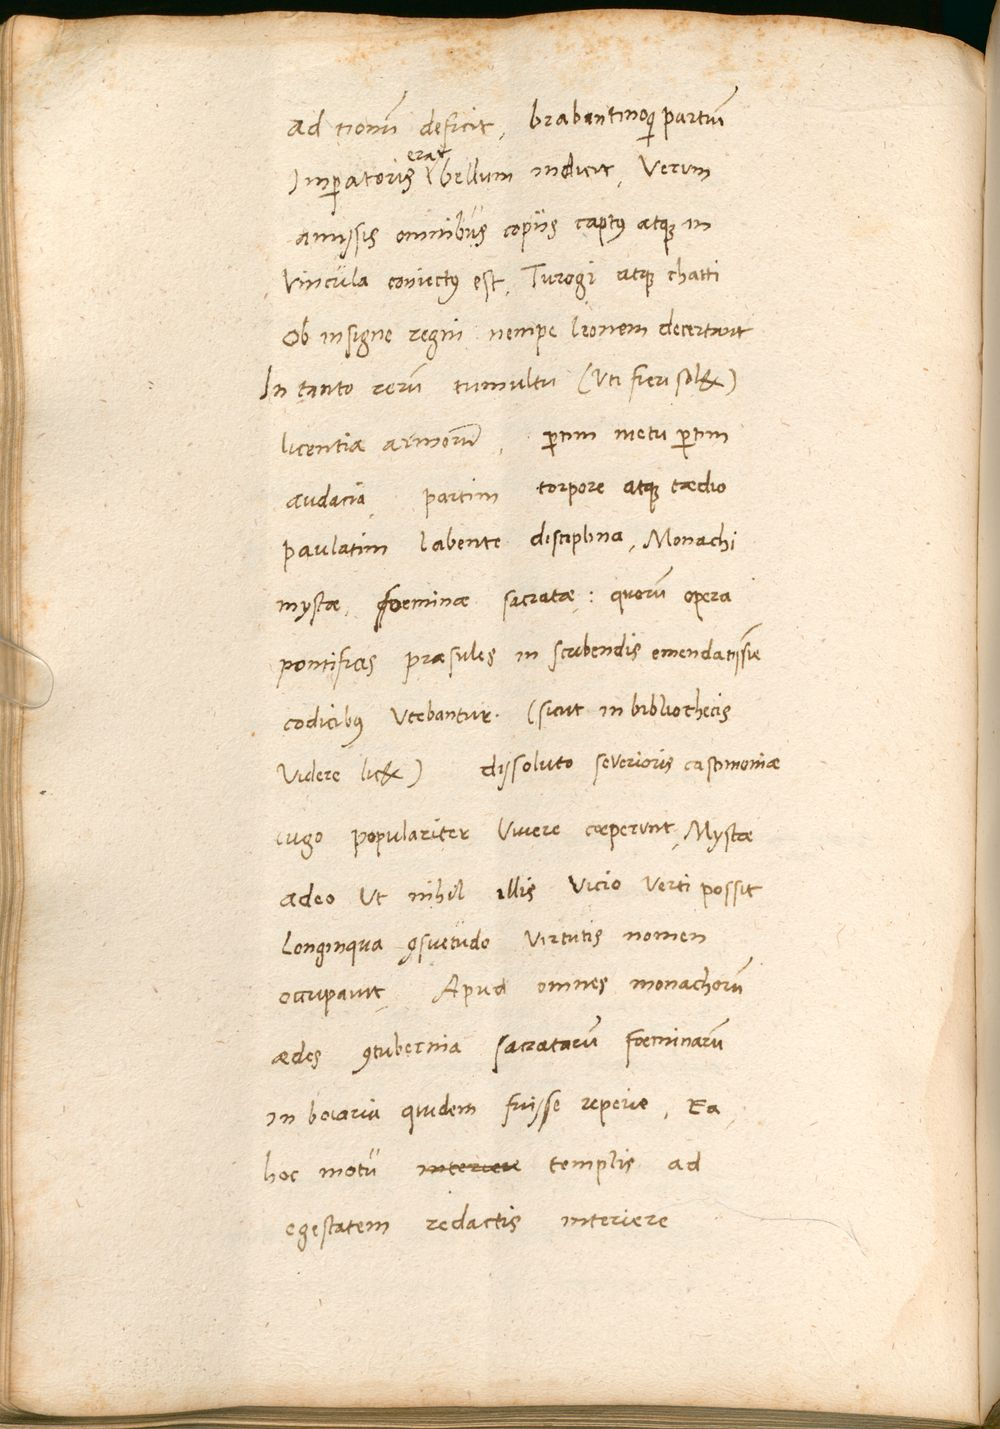 ad nonū deficit, brabantinoq; partiū
erat
Imꝑatoris bellum indicit, Verum
amissis omnibus copijs captꝰ atqꝫ in
Vincula coniectꝰ est, Turogi atqꝫ chatti
Ob insigne regni nempe leonem decertant
In tanto rerū tumultu (Vti fieri sol&)
licentia armorū, ꝑtim metu ꝑtim
audacia, partim torpore atqꝫ tædio
paulatim labente disciplina, Monachi
mystæ, foeminæ sacratæ : quorū opera
pontifices præsules in scribendis emendatisque
codicibꝰ Vtebantur. (sicut in bibliothecis
Videre lic&) dissoluto severioris castimoniæ
iugo populariter Vivere cœperunt, Mystæ
adeo Vt nihil illis Vicio Verti possit
Longinqua ꝯsuetudo Virtutis nomen
occupavit, Apud omnes monachorū
ædes ꝯtubernia sacratarū foeminarū
in boiaria quidem fuisse reperio, Ea,
hoc motu interiere templis ad
egestatem redactis interiere